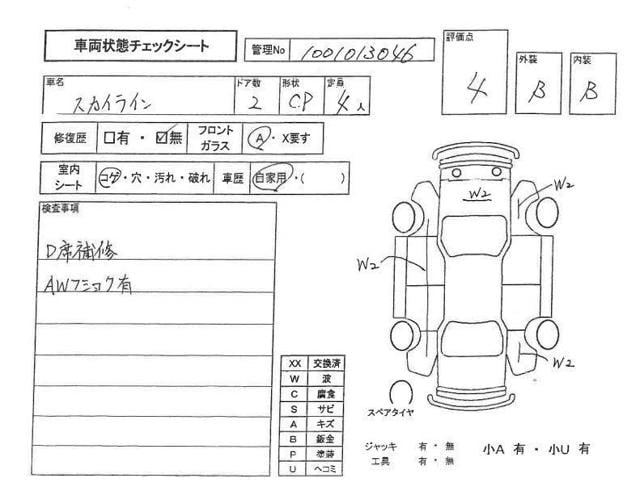 車両状態チェックシート 管理No 1001013046
評価点 4 外装 B 内装 B
車名 スカイライン ドア数 2 形状 C.P 定員 4人
修復歴 □有・☑無 フロントガラス A・X要す
室内シート コゲ・穴・汚れ・破れ 車歴 自家用・( )
検査事項
D席補修
AWフショク有
W2
W2
W2
W2
XX 交換済
W 波
C 腐食
S サビ
A キズ
B 鈑金
P 塗装
U ヘコミ
スペアタイヤ
ジャッキ 有・無
工具 有・無
小A 有・小U 有